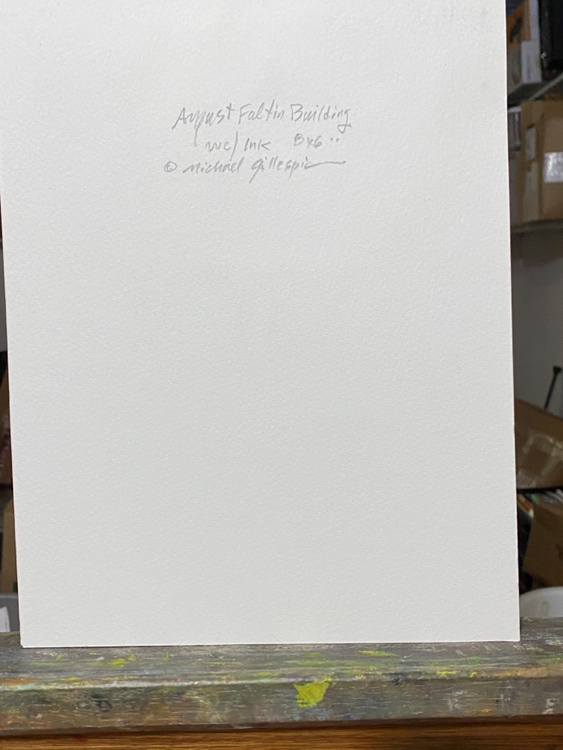 August Faltin Building
wc/ Ink 8x6"
© Michael Gillespie